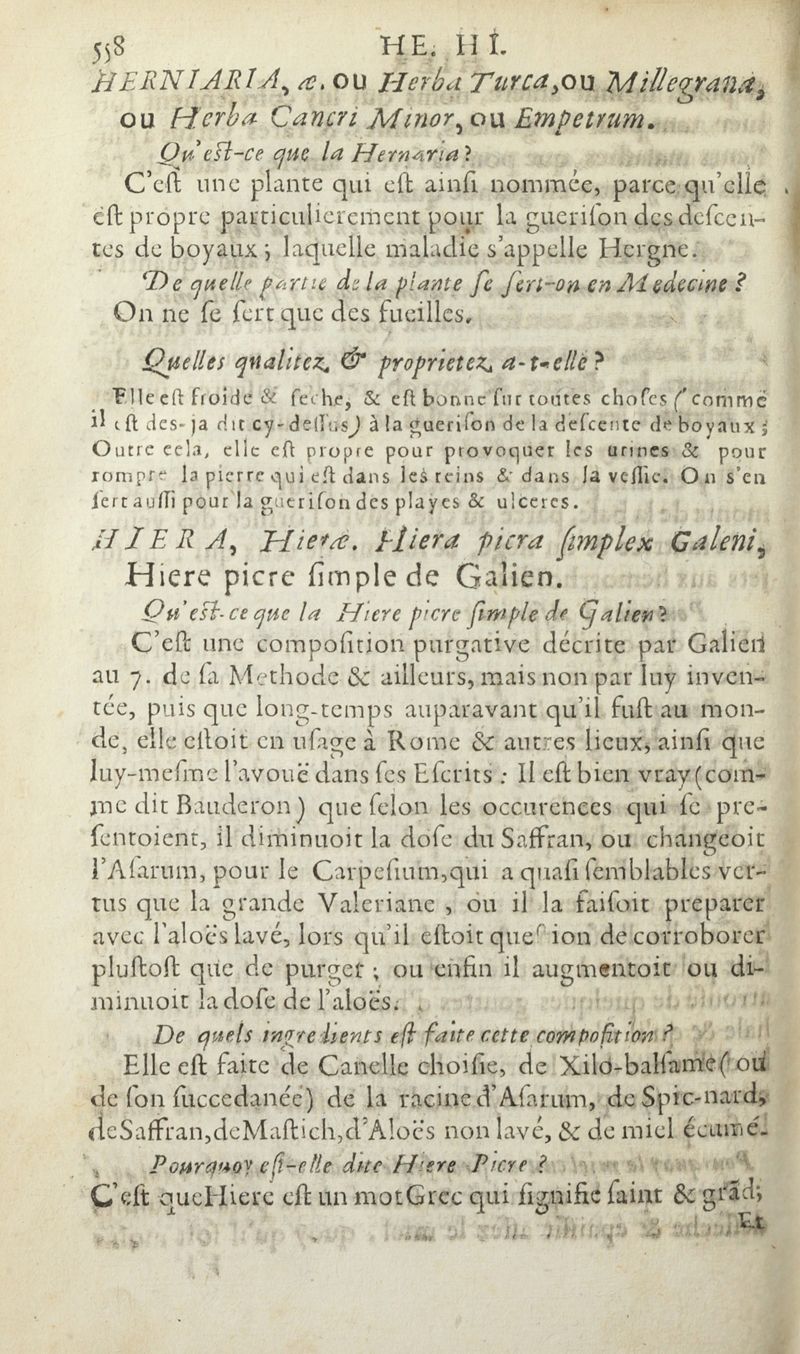 558 HE. HI.
HERNIARIA, æ. ou Herba Turca, ou Millegrana,
ou Herba Cancri Minor, ou Empetrum.
Qu'eſt-ce que la Hernaria?
C'eſt une plante qui eſt ainſi nommée, parce qu'elle
eſt propre particulierement pour la gueriſon des deſcen-
tes de boyaux; laquelle maladie s'appelle Hergne.
De quelle partie de la plante ſe ſert-on en Medecine?
On ne ſe ſert que des fueilles.
Quelles qualitez, & proprietez, a-t-elle?
Elle eſt froide & ſeche, & eſt bonne ſur toutes choſes (comme
il eſt des-ja dit cy-deſſus) à la gueriſon de la deſcente de boyaux;
Outre cela, elle eſt propre pour provoquer les urines & pour
rompre la pierre qui eſt dans les reins & dans la veſſie. On s'en
ſert auſſi pour la gueriſon des playes & ulceres.
HIERA, Hieræ. Hiera picra ſimplex Galeni,
Hiere picre ſimple de Galien.
Qu'eſt-ce que la Hiere picre ſimple de Galien?
C'eſt une compoſition purgative décrite par Galien
au 7. de ſa Methode & ailleurs, mais non par luy inven-
tée, puis que long-temps auparavant qu'il fuſt au mon-
de, elle eſtoit en uſage à Rome & autres lieux, ainſi que
luy-meſme l'avouë dans ſes Eſcrits: Il eſt bien vray (com-
me dit Bauderon) que ſelon les occurences qui ſe pre-
ſentoient, il diminuoit la doſe du Saffran, ou changeoit
l'Aſarum, pour le Carpeſium, qui a quaſi ſemblables ver-
tus que la grande Valeriane, ou il la faiſoit preparer
avec l'aloës lavé, lors qu'il eſtoit que ion de corroborer
pluſtoſt que de purger; ou enfin il augmentoit ou di-
minuoit la doſe de l'aloës.
De quels ingredients eſt faite cette compoſition?
Elle eſt faite de Canelle choiſie, de Xilo-balſame (ou
de ſon ſuccedanée) de la racine d'Aſarum, de Spic-nard,
de Saffran, de Maſtich, d'Aloës non lavé, & de miel écumé.
Pourquoy eſt-elle dite Hiere Picre?
C'eſt que Hiere eſt un mot Grec qui ſignifie ſaint & grãd;
Et